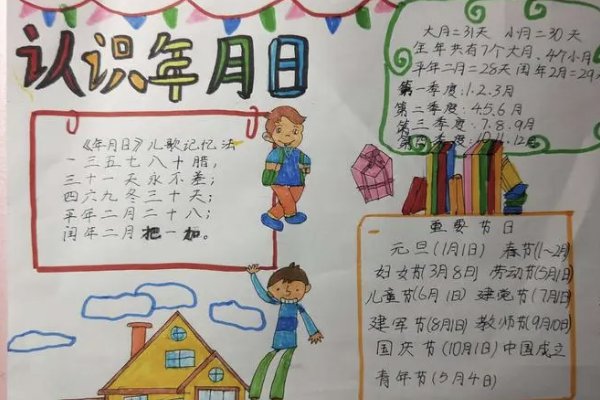 认识年月日
《年月日》儿歌记忆法
一三五七八十腊,
三十一天永不差;
四六九冬三十天;
平年二月二十八;
闰年二月把一加。
大月=31天 小月=30天
全年共有7个大月、4个小月
平年二月=28天 闰年2月=29
第一季度:1.2.3月
第二季度:4.5.6月
第三季度:7.8.9月
第四季度:10.11.12月
重要节日
元旦(1月1日) 春节(1~2月)
妇女节(3月8日) 劳动节(5月1日)
儿童节(6月1日) 建党节(7月1日)
建军节(8月1日) 教师节(9月10日)
国庆节(10月1日)中国成立
青年节(5月4日)